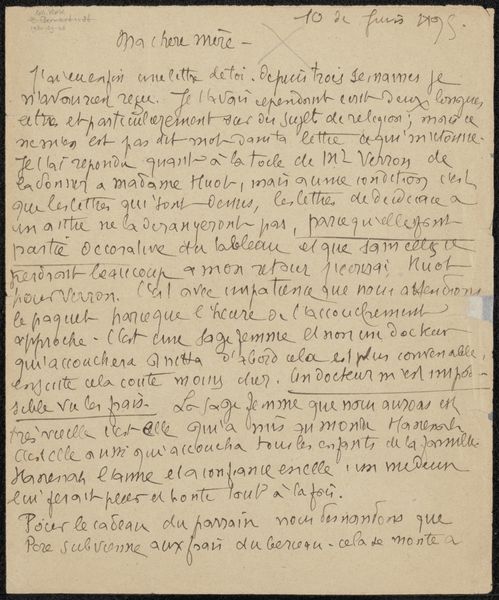 10 de Juin 1895.
Ma chere mère -
J'ai eu enfin une lettre de toi. depuis trois semaines je
n'avais rien reçu. Je t'avais cependant écrit deux longues
lettre et particulierement sur du sujet de religion; mais ce
dernier est pas dit mot dans ta lettre ce qui m'étonne.
Je t'ai repondu quant à la toile de Mr Verron de
la donner a madame Huot, mais a une condition c'est
que les lettres qui sont dessus, les lettres de dedicace a
un autre ne la derangeront pas, parce qu'elles font
partie decorative du tableau et que sans celles ci
perdront beaucoup a mon retour Huot
pour Verron. C'est avec impatience que nous attendions
le paquet parce que l'heure de l'accouchement
approche - C'est une sage femme et non un docteur
qui accouchera d'abord cela est plus convenable,
ensuite cela coute moins cher. Un docteur m'est impos-
sible vu les frais. La sage femme que nous aurons est
très vieille c'est elle qui a mis au monde Hanenah
C'est elle aussi qui accoucha tous les enfants de la famille.
Hanenah l'aime et a confiance en elle; un medecin
lui ferait peur et honte tout à la fois.
Pour le cadeau du parrain nous demandons que
Pere subvienne aux frais du berceau - cela se monte a